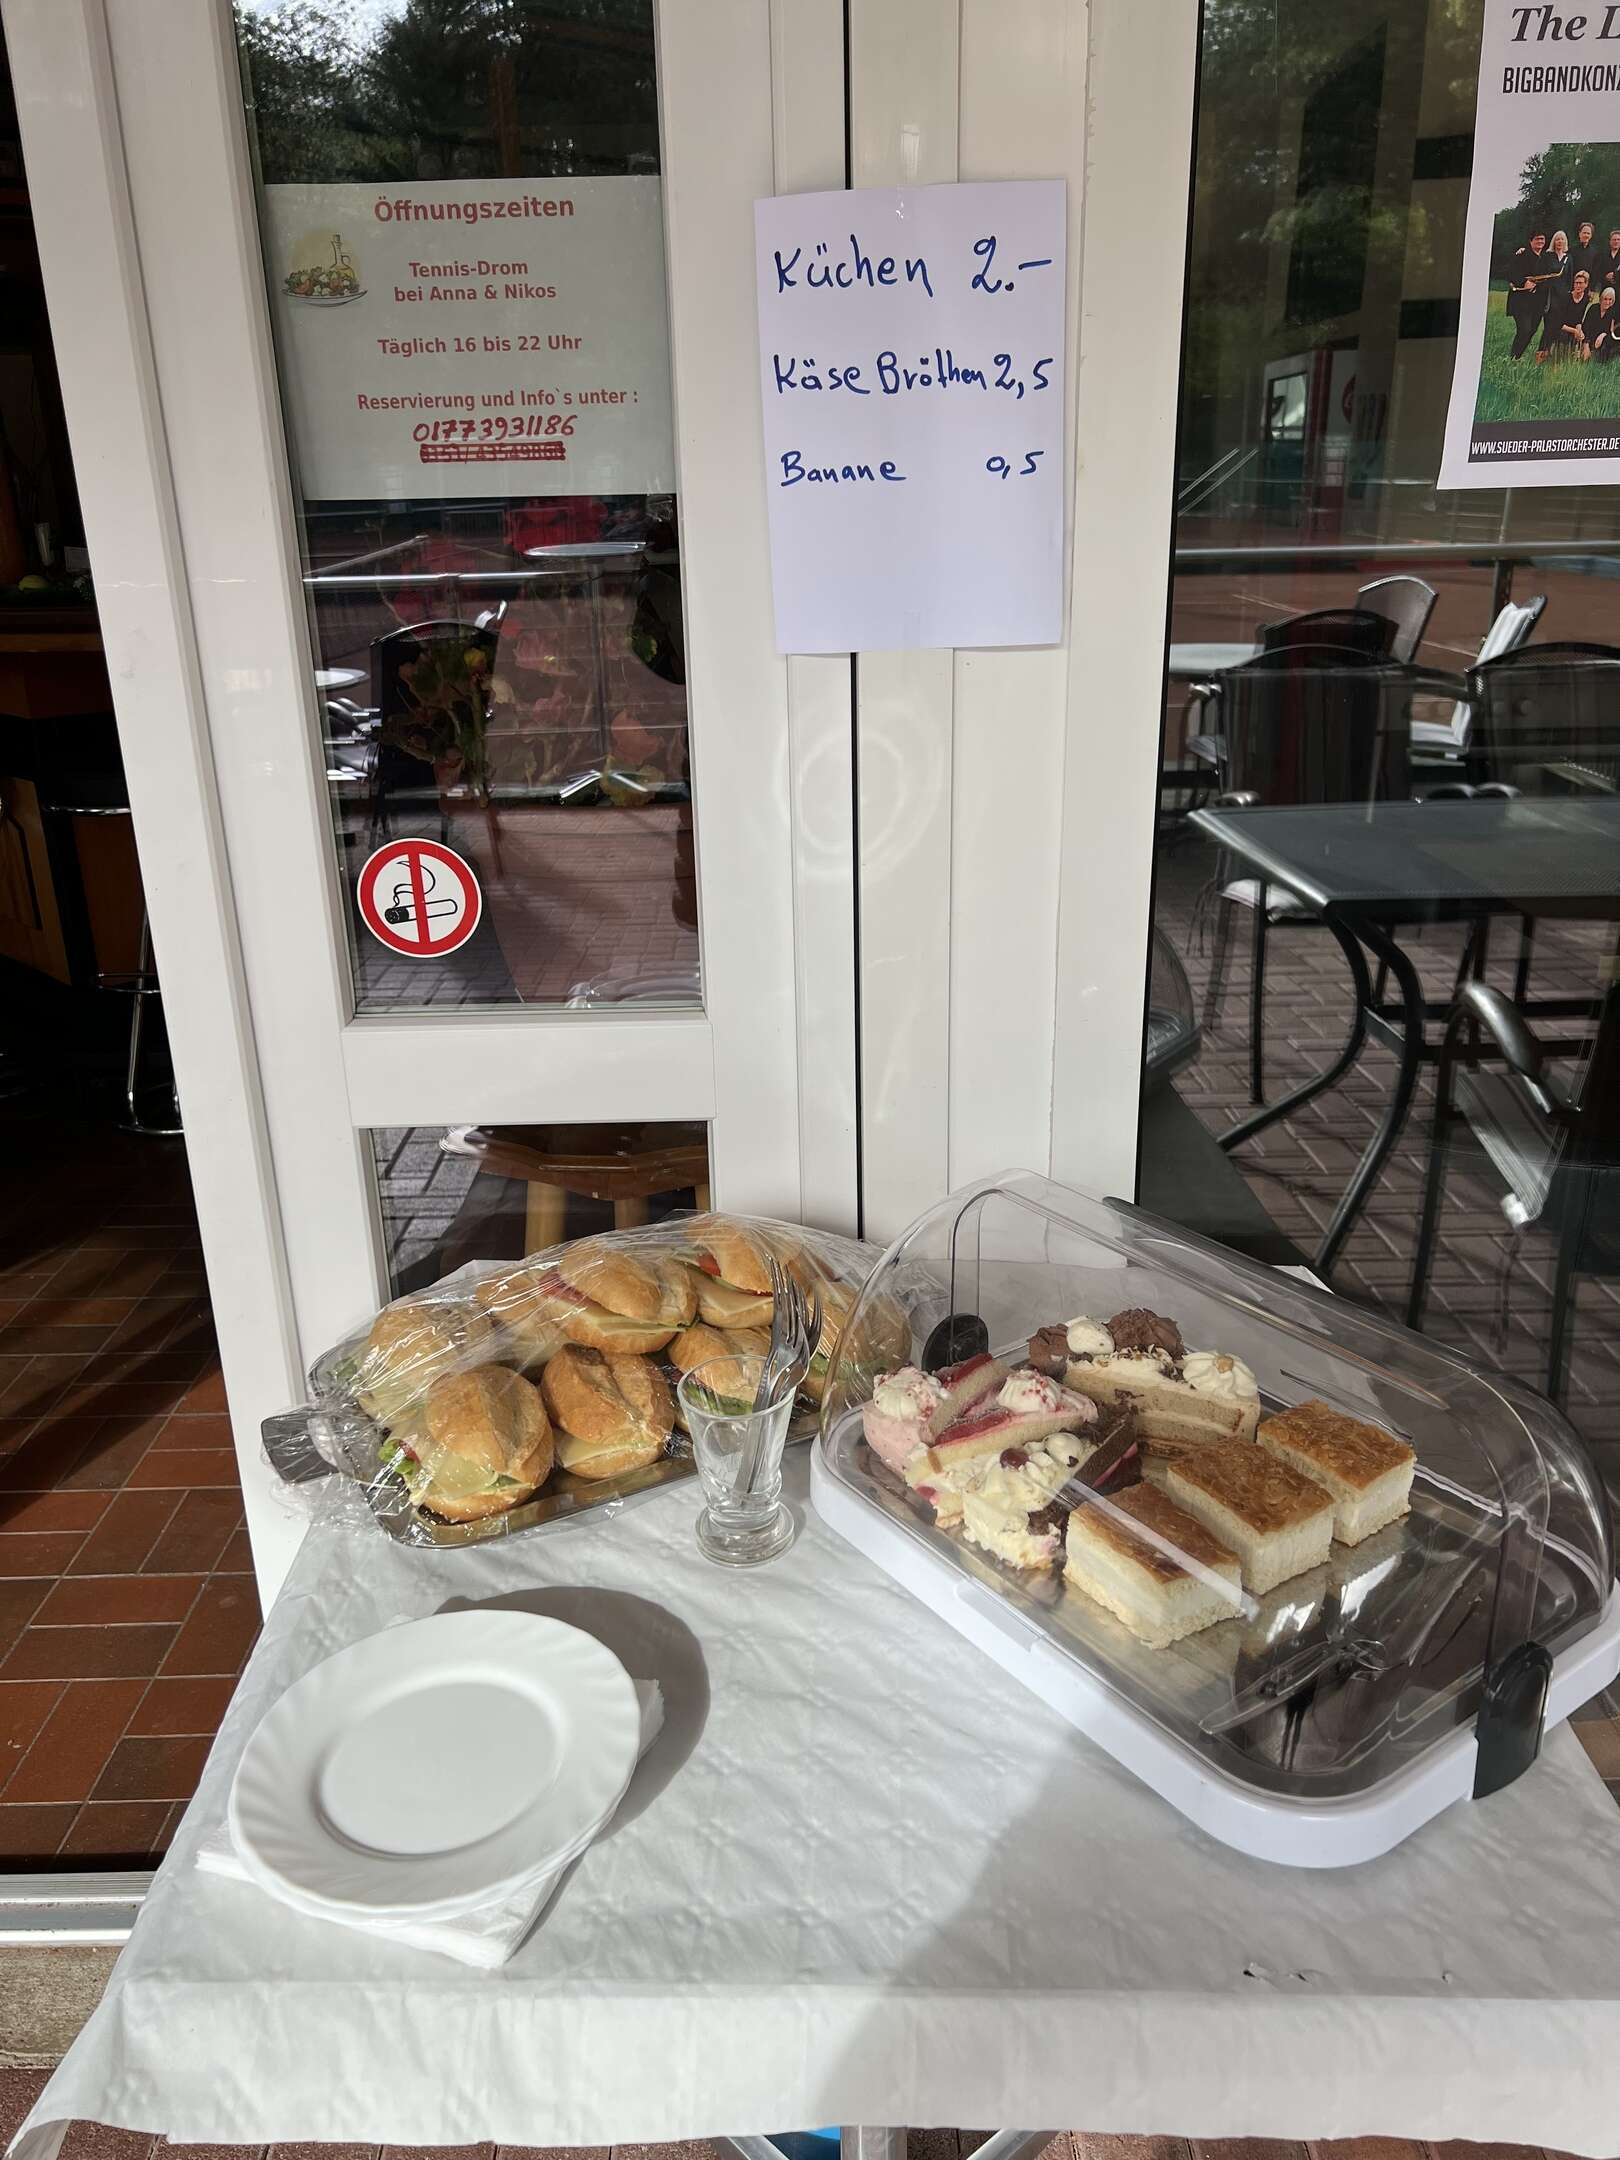 Öffnungszeiten
Tennis-Drom
bei Anna & Nikos
Täglich 16 bis 22 Uhr
Reservierung und Info`s unter :
01773931186
Küchen 2.-
Käse Bröthen 2,5
Banane 0,5
The
BIGBANDKONZ
WWW.SUEDER-PALASTORCHESTER.DE